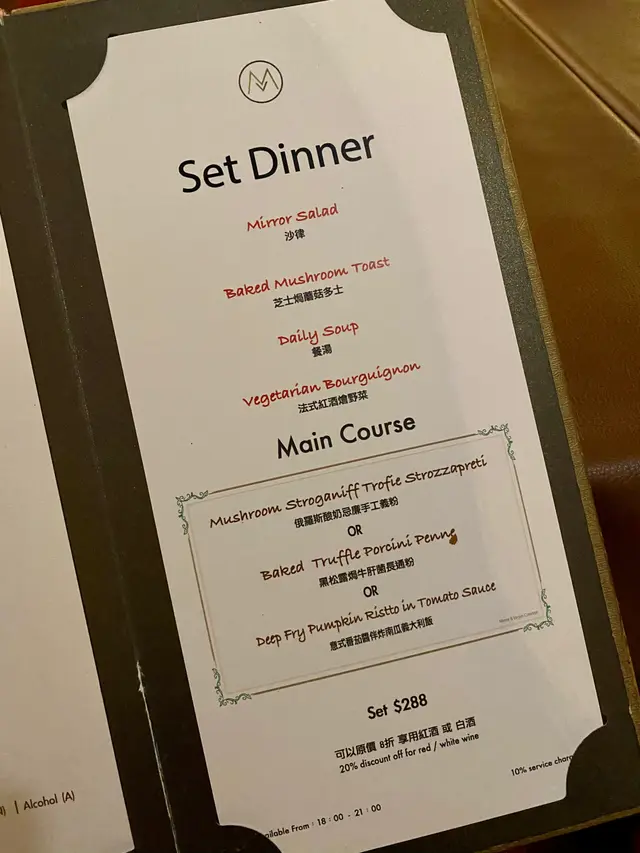 M
Set Dinner
Mirror Salad
沙律
Baked Mushroom Toast
芝士焗蘑菇多士
Daily Soup
餐湯
Vegetarian Bourguignon
法式紅酒燴野菜
Main Course
Mushroom Stroganiff Trofie Strozzapreti
俄羅斯酸奶忌廉手工義粉
OR
Baked Truffle Porcini Penne
黑松露焗牛肝菌長通粉
OR
Deep Fry Pumpkin Ristto in Tomato Sauce
意式番茄醬伴炸南瓜義大利飯
Set $288
可以原價 8折 享用紅酒 或 白酒
20% discount off for red / white wine
10% service
from : 18 : 00 - 21 : 00
| Alcohol (A)